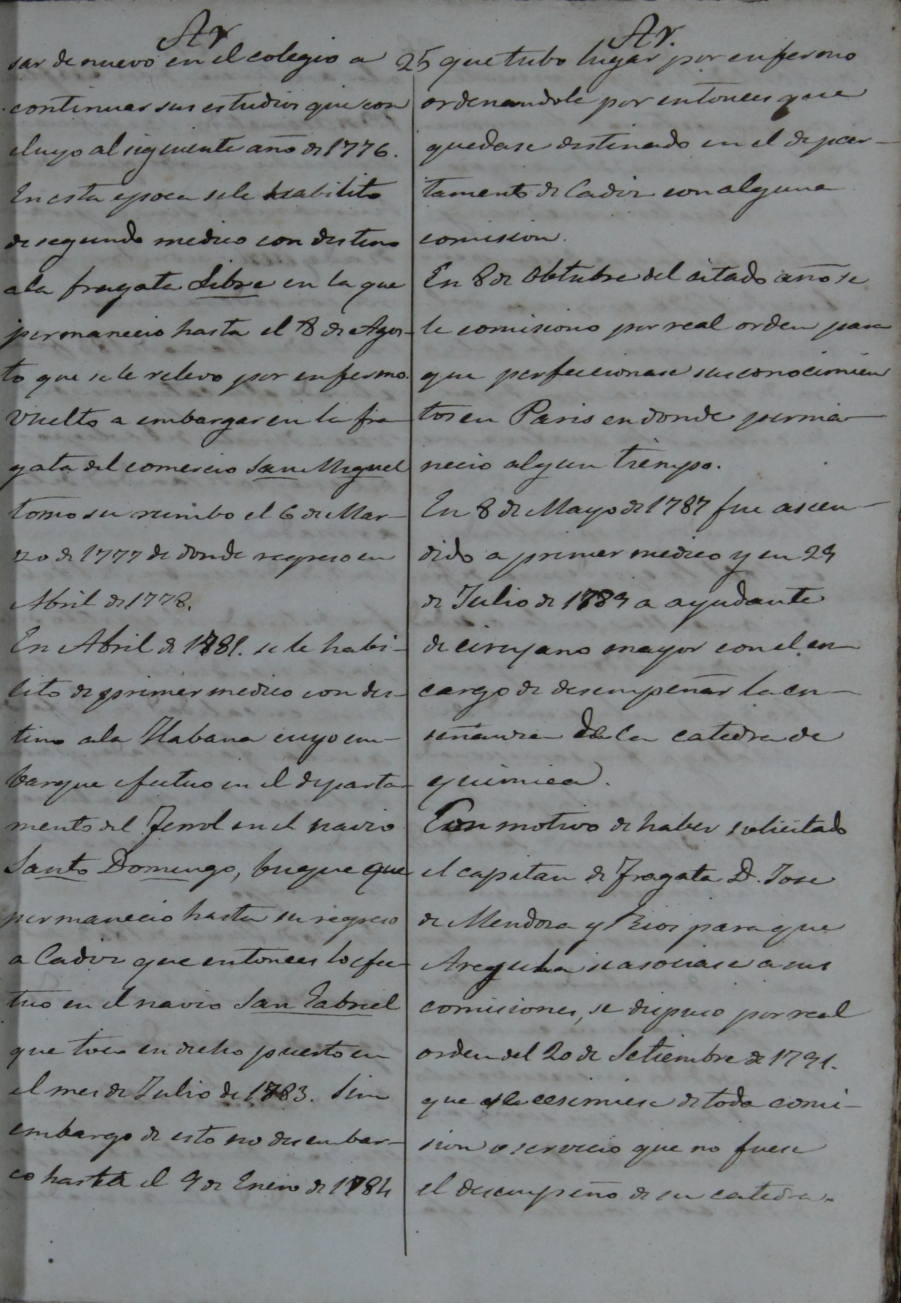 Ar
sar de nuevo en el colegio a
continuar sus estudios que con
cluyo al siguiente año de 1776.
En esta epoca se le habilito
de segundo medico con destino
a la fragata Libre en la que
permanecio hasta el 8 de Agos-
to que se le relevo por enfermo.
Vuelto a embargar en la fra-
gata del comercio San Miguel
tomo su rumbo el 6 de Mar-
zo de 1777 de donde regreso en
Abril de 1778.
En Abril de 1781. se le habi-
lito de primer medico con des-
tino a la Habana cuyo em-
barque efectuo en el departa-
mento del Ferrol en el navio
Santo Domingo, buque que
permanecio hasta su regreso
a Cadiz que entonces lo efec-
tuo en el navio San Gabriel
que toco en dicho puerto en
el mes de Julio de 1783. Sin
embargo de esto no desembar-
co hasta el 9 de Enero de 1784
25
Ar.
que tubo lugar por enfermo
ordenandole por entonces que
quedase destinado en el depar-
tamento de Cadiz con alguna
comision.
En 8 de Obtubre del citado año se
le comisiono por real orden para
que perfeccionase sus conocimien
tos en Paris en donde perma-
necio algun tiempo.
En 8 de Mayo de 1787 fue ascen-
dido a primer medico y en 29
de Julio de 1789 a ayudante
de cirujano mayor con el en-
cargo de desempeñar la en-
señanza de la catedra de
quimica.
Con motivo de haber solicitado
el capitan de Fragata D. Jose
de Mendoza y Rios para que
se asociase a sus
comisiones, se dispuso por real
orden del 20 de Setiembre de 1791.
que se le escimiese de toda comi-
sion o servicio que no fuese
el desempeño de su catedra.